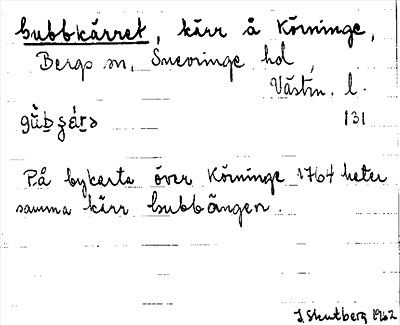 Gubbkärret, kärr å Körninge,
Bergs sn, Snevringe hd,
Västm. l.
131
På bykarta över Körninge 1764 heter
samma kärr Gubbängen.
J. Skutberg 1962